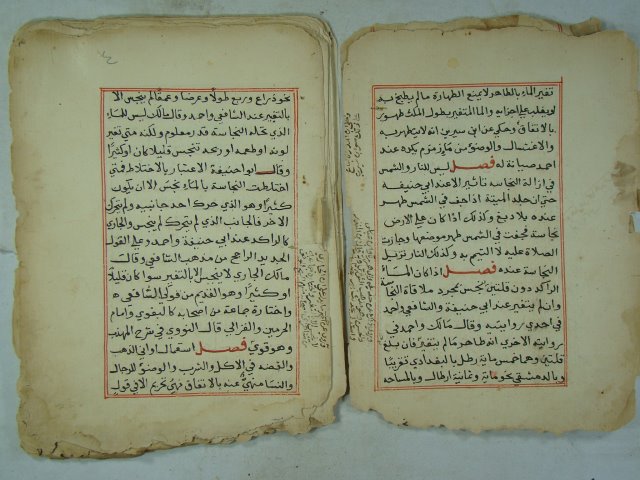 تغير الماء بالطاهر لا يمنع الطهارة ما لم يطبخ به
او يغلب علي اجزايه والما المتغير بطول المكث طهور
بالاتفاق وحكي عن ابن سيرين انه لا يتطهر به
والاغتسال والوضوء من ماء زمزم يكره عند
احمد صيانة له فصل ليس للنار والشمس
في ازالة النجاسه تأثير الا عند ابي حنيفه
حتي ان جلد الميتة اذا جف في الشمس طهر
عنده بلا دبغ وكذلك اذا كان علي الارض
نجاسة فجفت في الشمس طهر موضعها وجازت
الصلاة عليه لا التيمم به وكذلك النار تزيل
النجاسة عنده فصل اذا كان الماء
الراكد دون قلتين نجس بمجرد ملاقاة النجاسة
وان لم يتغير عند ابي حنيفة والشافعي واحمد
في احدي روايتيه وقال مالك واحمد في
روايته الاخري انه طاهر ما لم يتغير فان بلغ
قلتين وهما خمس ماية رطل بالبغدادي تقريبا
وبالدمشقي نحو ماية وثمانية ارطال وبالمساحه
نحو ذراع وربع طولا وعرضا وعمقا لم ينجس الا
بالتغير عند الشافعي واحمد وقال مالك ليس للماء
الذي تحله النجاسة قدر معلوم ولكنه متي تغير
لونه او طعمه او ريحه تنجس قليلا كان او كثيرا
وقال ابو حنيفة الاعتبار بالاختلاط فمتي
اختلطت النجاسة بالماء نجس الا ان يكون
كثيرا وهو الذي حرك احد جانبيه ولم يتحرك
الاخر فالجانب الذي لم يتحرك لم ينجس والجاري
كالراكد عند ابي حنيفة واحمد وعلي القول
الجديد الراجح من مذهب الشافعي وقال
مالك الجاري لا ينجس الا بالتغير سوا كان قليلا
او كثيرا وهو القديم من قولي الشافعي
واختاره جماعة من اصحابه كالبغوي وامام
الحرمين والغزالي قال النووي في شرح المهذب
وهو قوي فصل استعمال اواني الذهب
والفضه في الاكل والشرب والوضوء للرجال
والنساء منهي عنه بالاتفاق نهي تحريم الا في قول